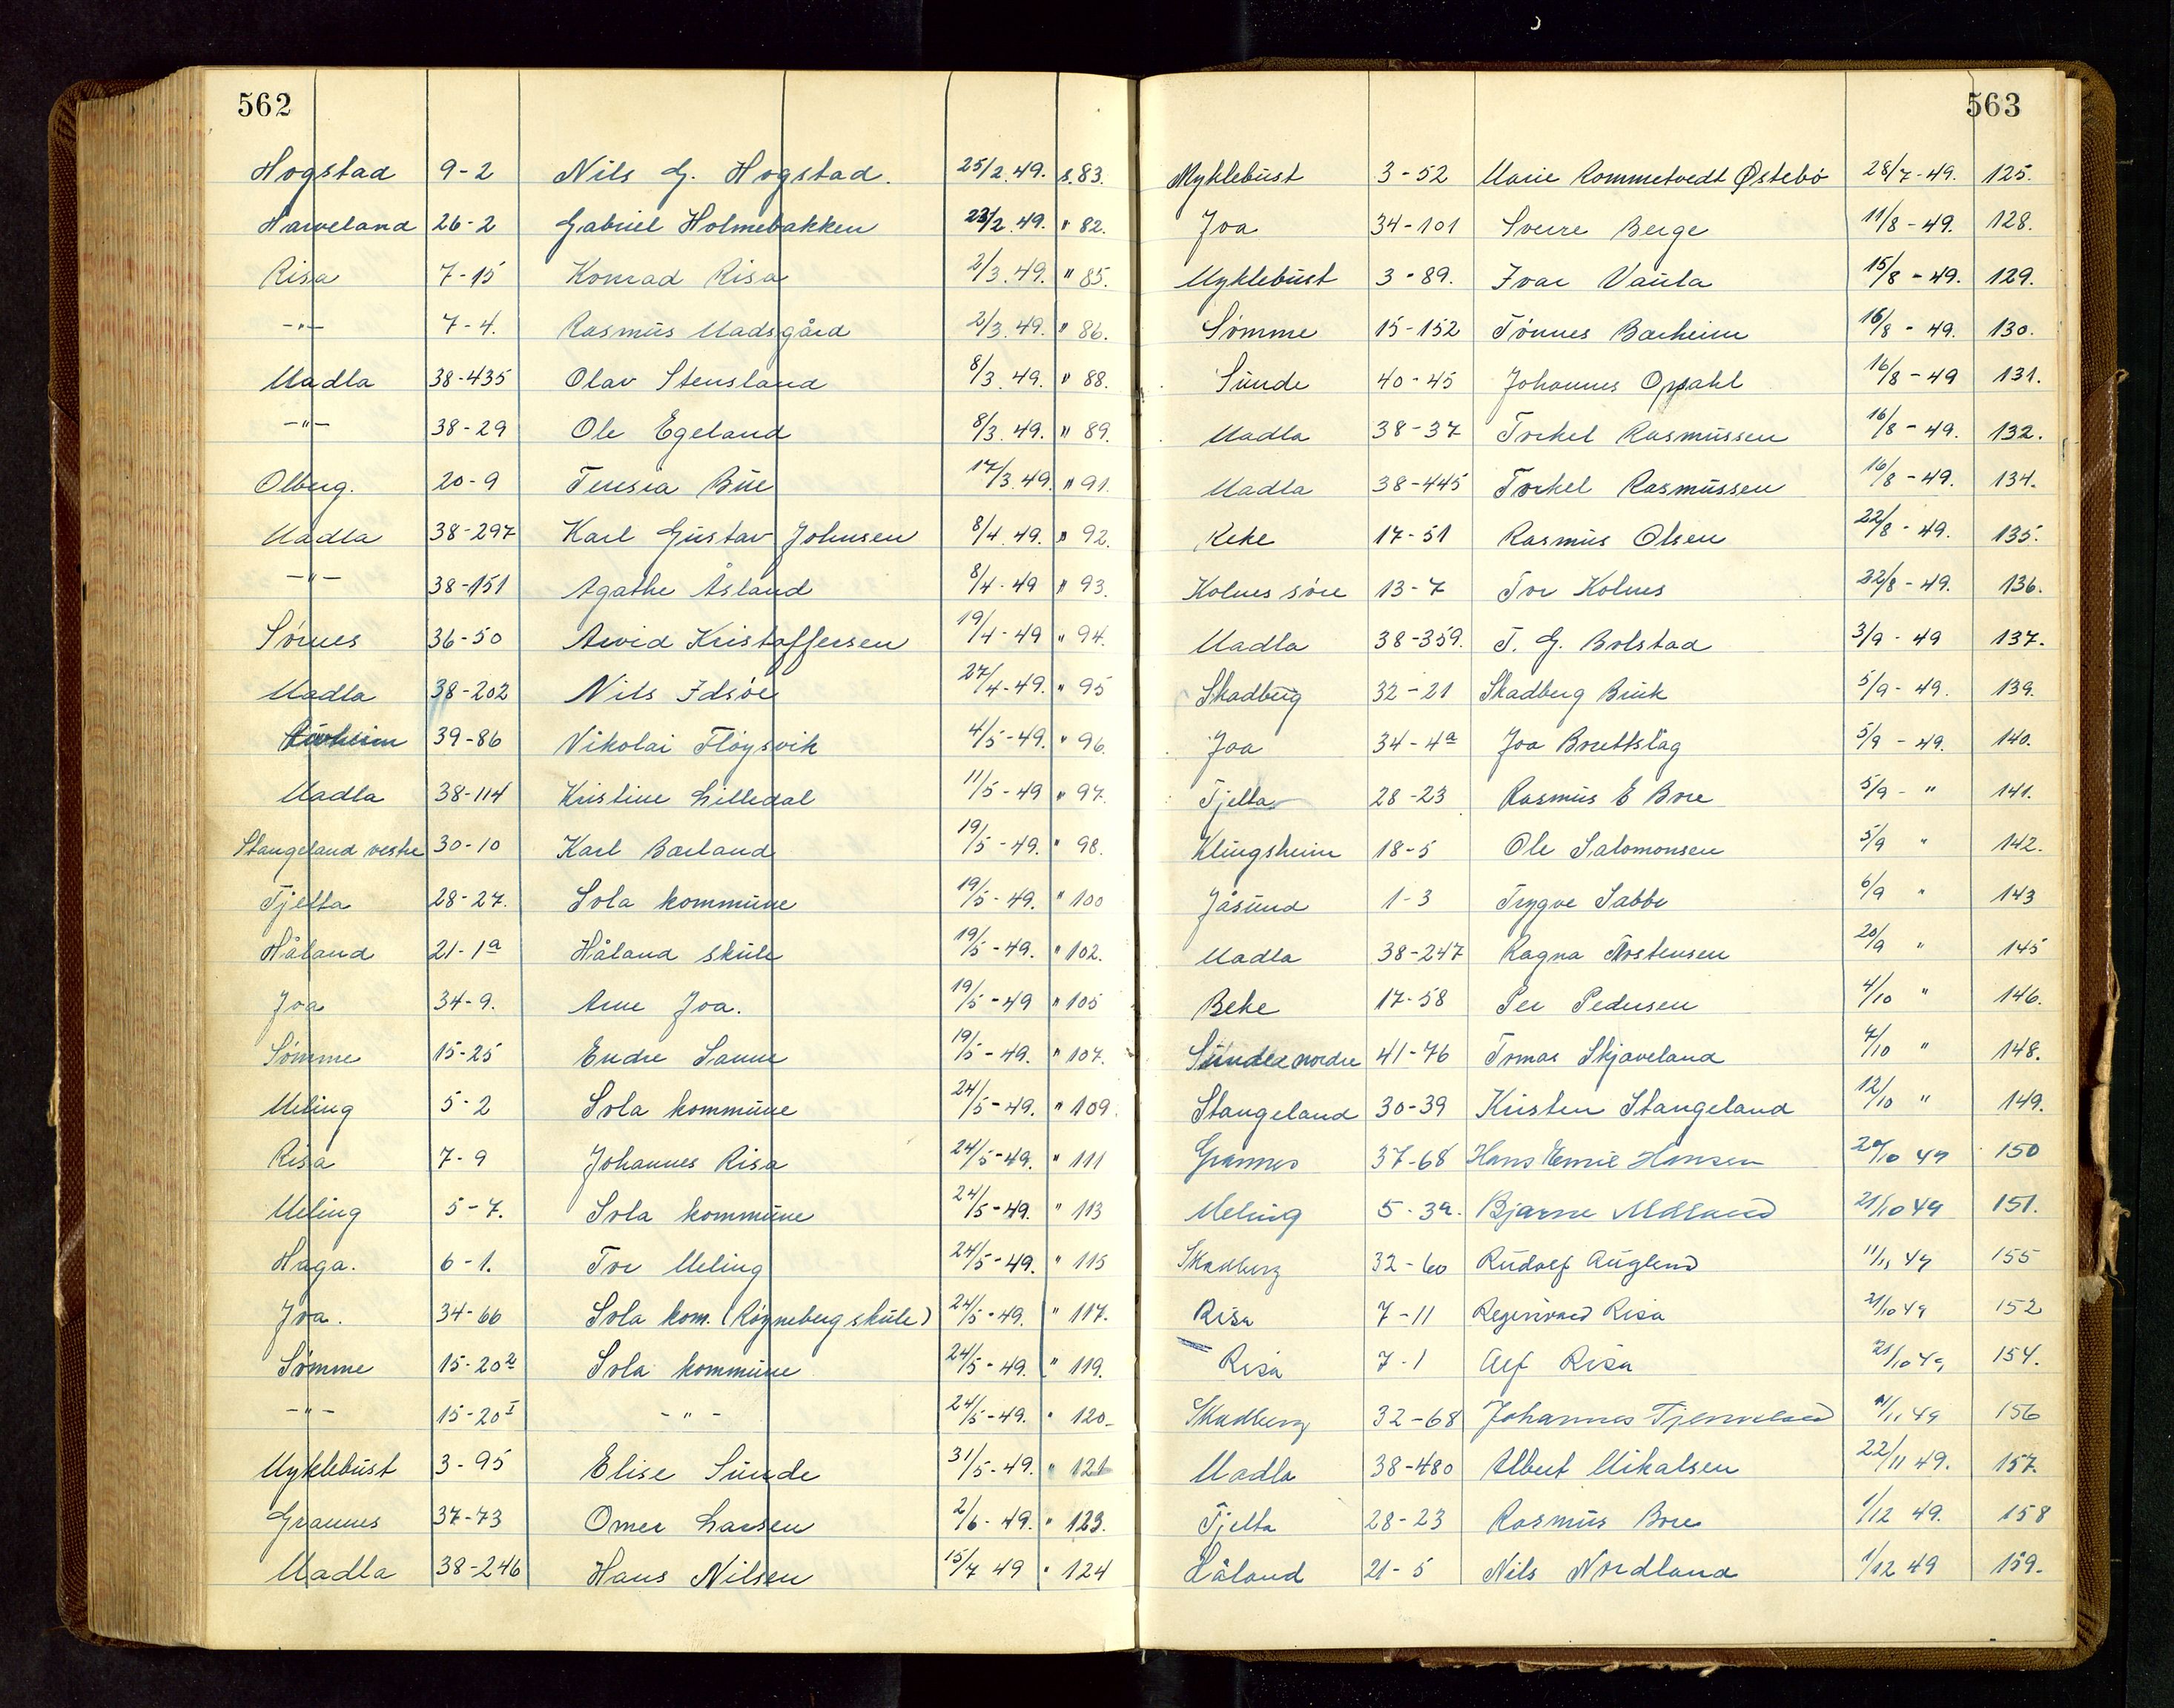 562
Hogstad 9-2 Nils G. Hogstad. 25/2.49. s.83.
Harveland 26-2 Gabriel Holmebakken 23/2.49. " 82.
Risa 7-15 Konrad Risa 2/3.49. " 85.
-"- 7-4. Rasmus Madsgård 2/3.49. " 86.
Madla 38-435 Olav Stensland 8/3.49. " 88.
-"- 38-29 Ole Egeland 8/3.49. " 89.
Olberg. 20-9 Teresia Bue 17/3.49. " 91.
Madla 38-297 Karl Gustav Johnsen 8/4.49. " 92.
-"- 38-151 Agathe Åsland 8/4-49 " 93.
Sørnes 36-50 Arvid Kristoffersen 19/4-49 " 94.
Madla 38-202 Nils Idsøe 27/4-49. " 95
39-86 Nikolai Fløysvik 4/5-49. " 96.
Madla 38-114 Kristine Lilledal 11/5-49 " 97.
Stangeland vestre 30-10 Karl Barland 19/5-49. " 98.
Tjelta 28-27. Sola kommune 19/5-49. " 100
Håland 21-1a Håland skule 19/5-49. " 102.
Joa 34-9. Arne Joa. 19/5-49 " 105
Sømme 15-25 Endre Sanne 19/5-49. " 107.
Meling 5-2 Sola kommune 24/5-49. " 109.
Risa 7-9 Johannes Risa 24/5-49. " 111
Meling 5-7. Sola kommune 24/5-49. " 113
Haga. 6-1. Tor Meling 24/5-49. " 115
Joa. 34-66 Sola kom. (Røyneberg skule) 24/5-49. " 117.
Sømme 15-20 Sola kommune 24/5-49. " 119.
-"- 15-20I -"- 24/5-49. " 120.
Myklebust 3-95 Elise Sunde 31/5-49. " 121
Grannes 37-73 Omer Larsen 2/6-49. " 123.
Madla 38-246 Hans Nilsen 15/7 49 " 124
563
Myklebust 3-52 Marie Rommetvedt Østebø 28/7-49. 125.
Joa 34-101 Sverre Berge 11/8-49. 128.
Myklebust 3-89. Ivar Vaula 15/8-49. 129.
Sømme 15-152 Tønnes Barheim 16/8-49. 130.
Sunde 40-45 Johannes Opsahl 16/8-49 131.
Madla 38-37 Torkel Rasmussen 16/8-49. 132.
Madla 38-445 Torkel Rasmussen 16/8-49. 134.
17-51 Rasmus Olsen 22/8-49. 135.
Kolnes søre 13-7 Tor Kolnes 22/8-49. 136.
Madla 38-359. T. G. Bolstad 3/9-49 137.
Skadberg 32-21 Skadberg Bruk 5/9-49. 139.
Joa 34-4a Joa Brettslag 5/9-49. 140.
Tjelta 28-23 Rasmus E Bore 5/9-" 141.
Klingsheim 18-5 Ole Salomonsen 5/9 " 142.
Jåsund 1-3 Trygve Sabbe 6/9 " 143
Madla 38-247 Ragna Torstensen 20/9 " 145
Beke 17-58 Per Pedersen 4/10 " 146.
Sunde nordre 41-76 Tomas Skjaveland 7/10 " 148.
Stangeland 30-39 Kristen Stangeland 12/10 " 149.
Grannes 37-68 Hans Emil Hansen 49 150
Meling 5-3a. Bjarne 21/10 49 151.
Skadberg 32-60 Rudolf Auglend 11/11 49 155
Risa 7-11 Risa 21/10 49 152
Risa 7-1 Alf Risa 21/10 49 154.
Skadberg 32-68 Johannes 11/11 49 156
Madla 38-480 Albert Mikalsen 22/11 49. 157.
Tjelta 28-23 Rasmus Bore 1/12 49. 158
Håland 21-5 Nils Nordland 1/12 49 159.